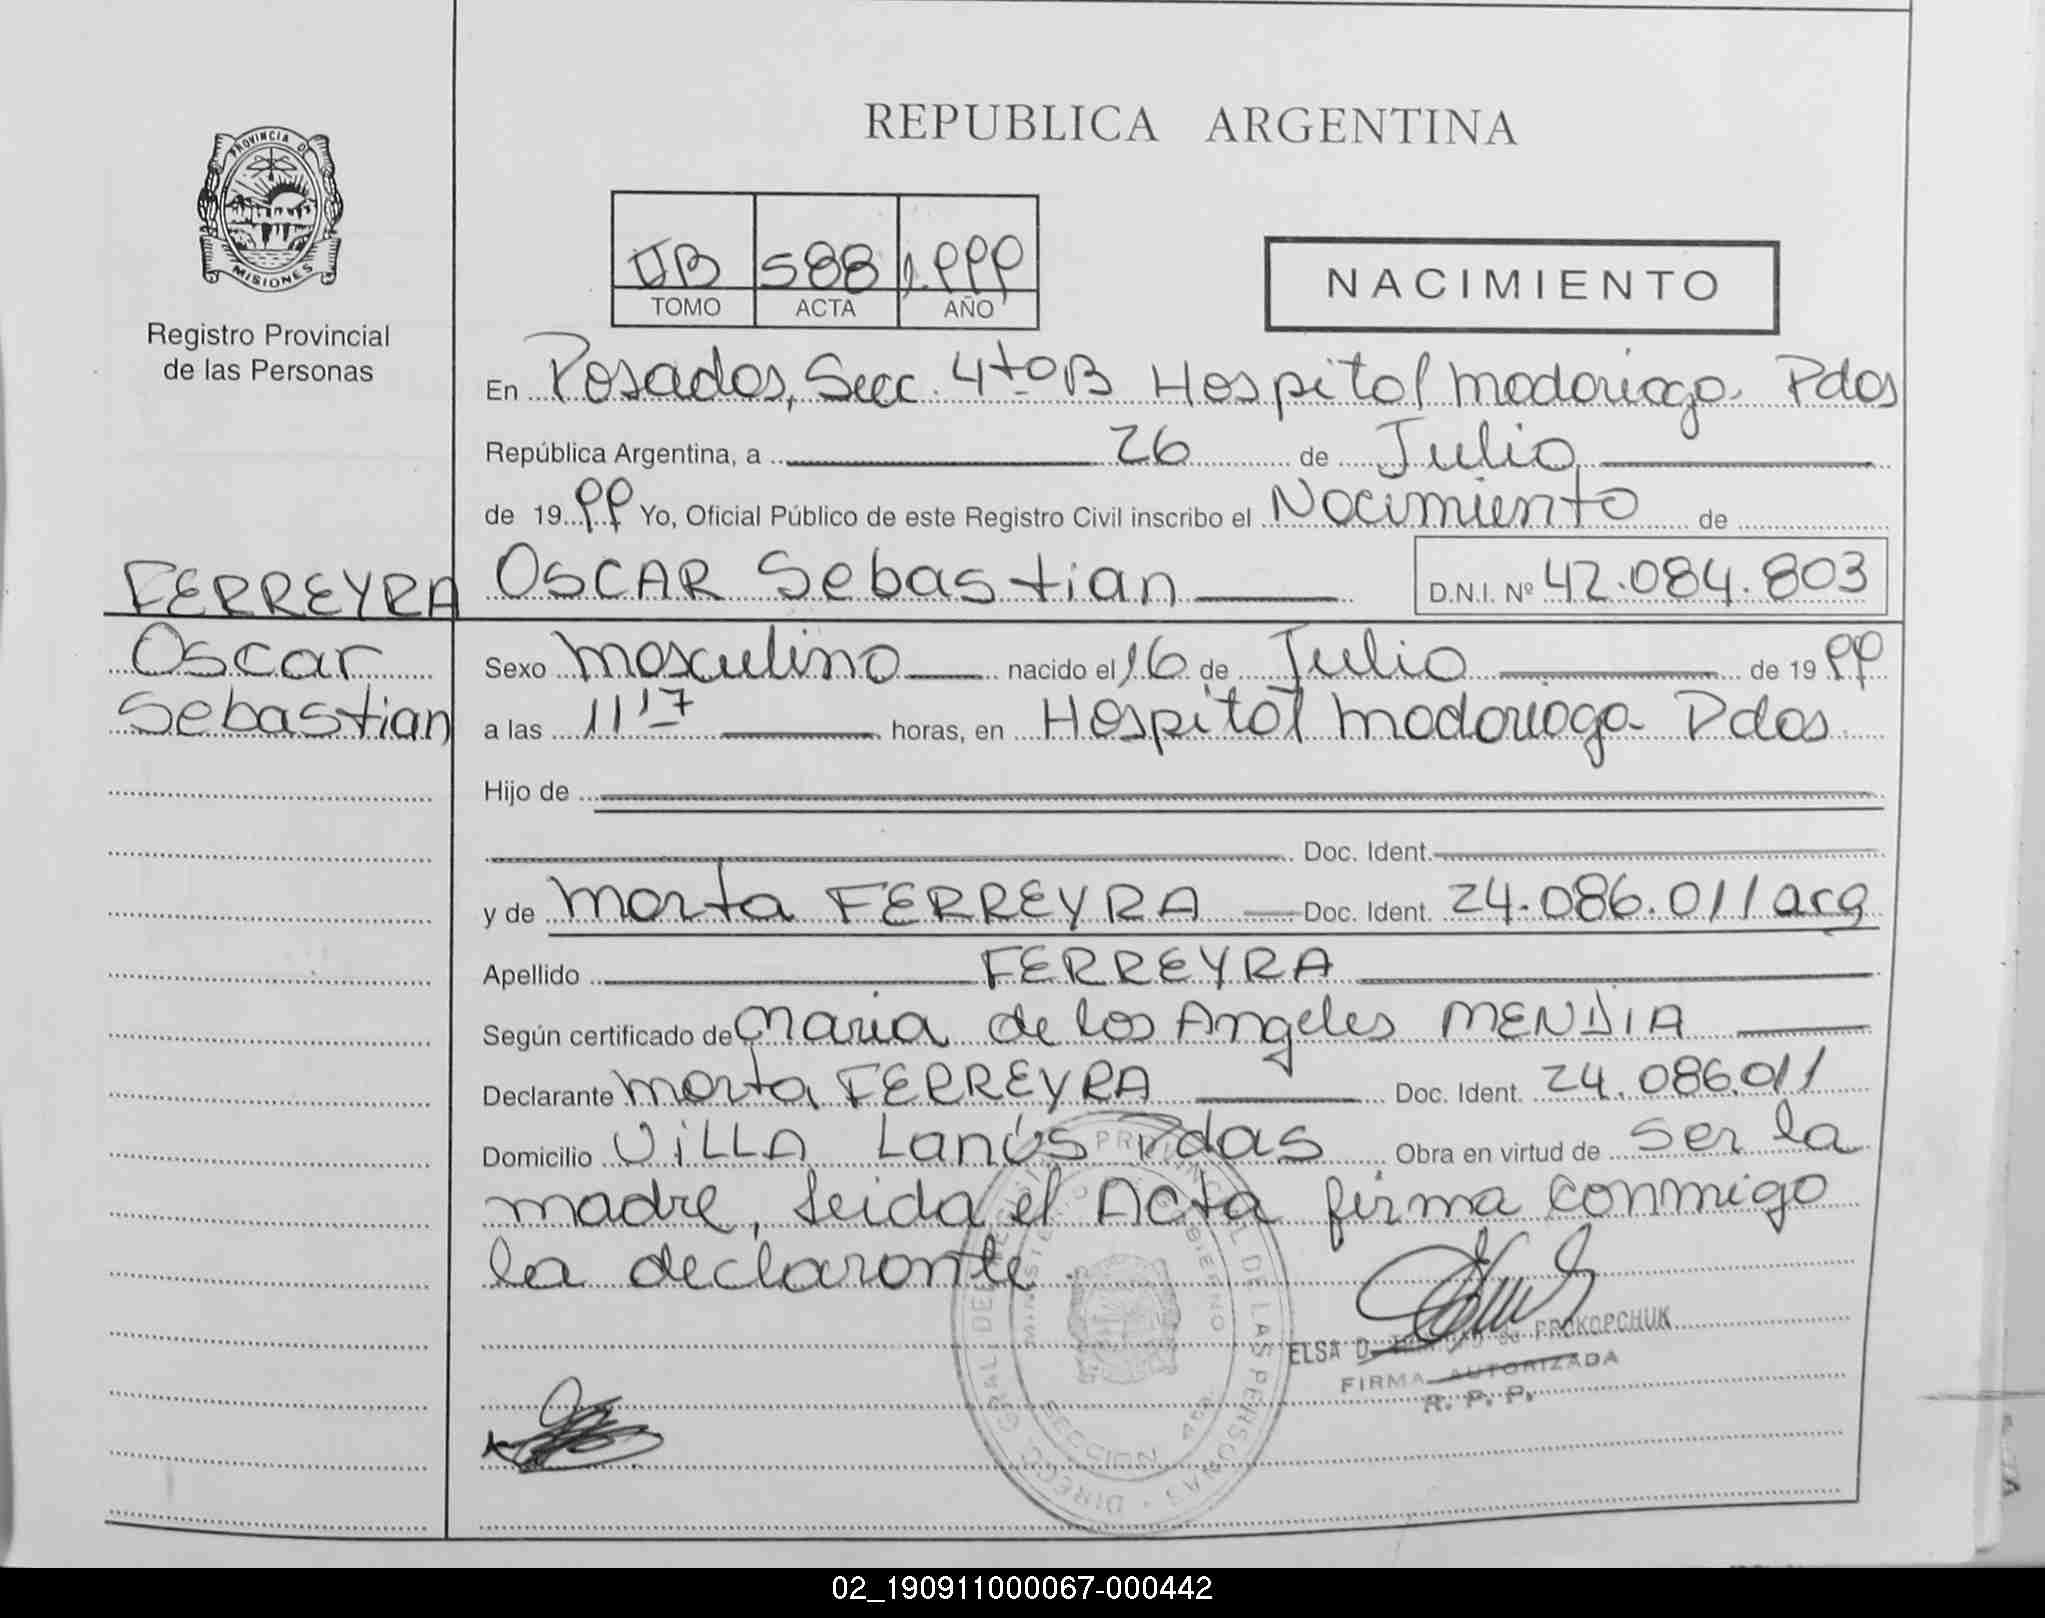 REPUBLICA ARGENTINA
PROVINCIA DE MISIONES
Registro Provincial
de las Personas
IIB 588 1.999
TOMO ACTA AÑO
NACIMIENTO
En Posadas, Secc. 4toB Hospital Madariaga Pdas
República Argentina, a 26 de Julio
de 1999 Yo, Oficial Público de este Registro Civil inscribo el Nacimiento de
OSCAR Sebastian D.N.I. Nº 42.084.803
FERREYRA
Oscar
Sebastian
Sexo masculino nacido el 16 de Julio de 1999
a las 11 17 horas, en Hospital Madariaga Pdas
Hijo de
Doc. Ident.
y de Marta FERREYRA Doc. Ident. 24.086.011 arg
Apellido FERREYRA
Según certificado de Maria de los Angeles MENDIA
Declarante Marta FERREYRA Doc. Ident. 24.086.011
Domicilio VILLA Lanús Pdas Obra en virtud de ser la
madre, leida el Acta firma conmigo
la declarante
ELSA D. de PROKOPCHUK
FIRMA AUTORIZADA
R. P. P.
DIRECC. GRAL. DEL REGISTRO PROVINCIAL DE LAS PERSONAS
02_190911000067-000442